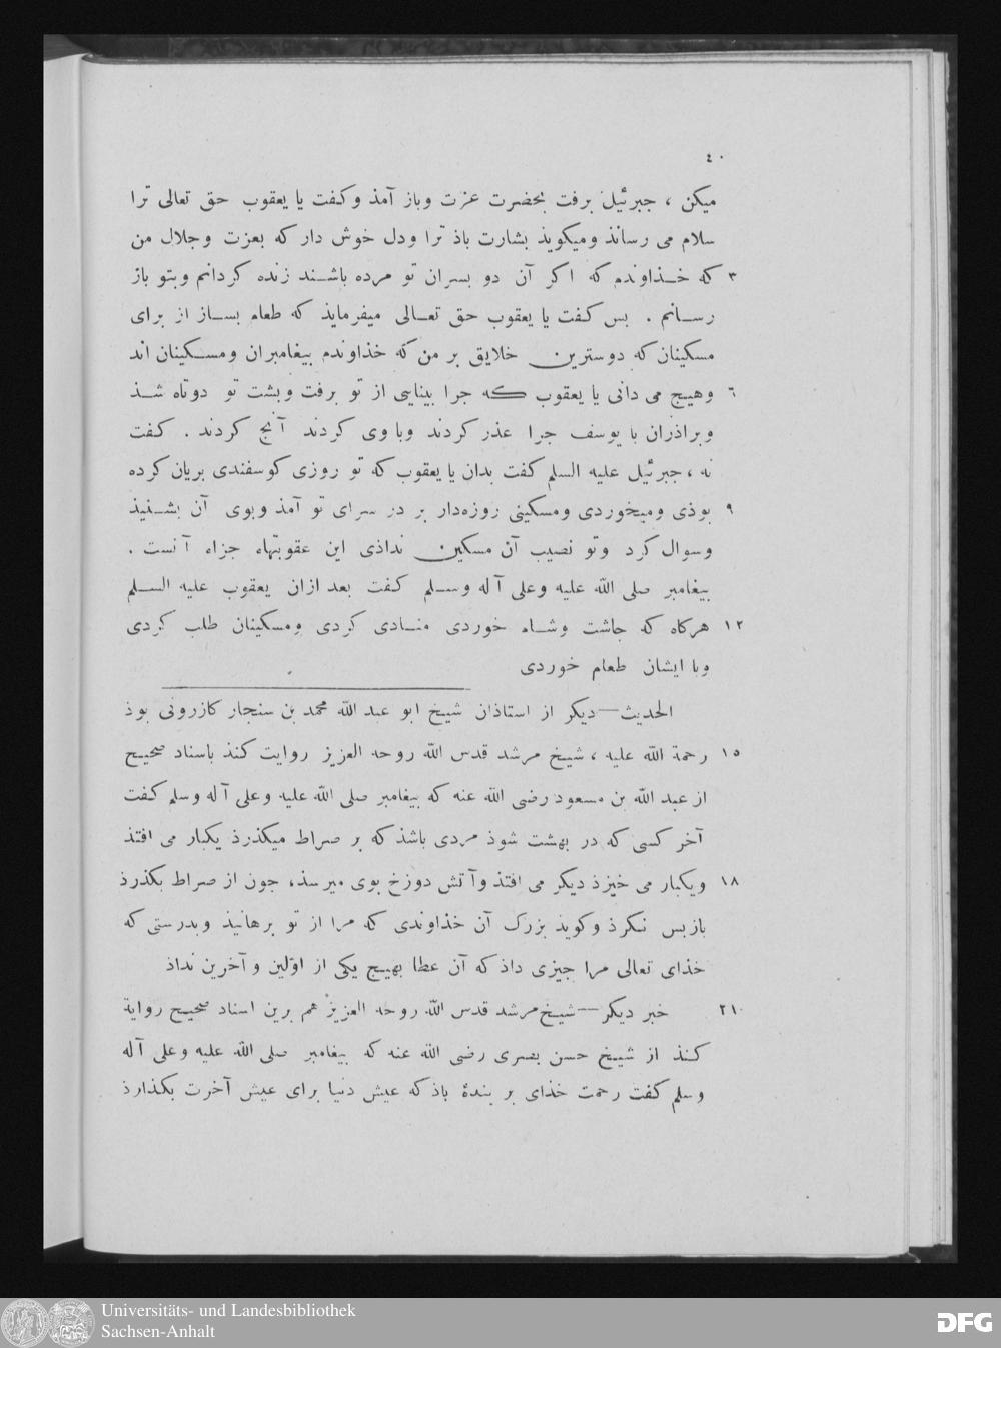 ٤٠
میکن ، جبرئیل برفت بحضرت عزت وباز آمذ وکفت یا یعقوب حق تعالی ترا
سلام می رسانذ ومیکویذ بشارت باذ ترا ودل خوش دار که بعزت وجلال من
٣ که خذاوندم که اکر آن دو بسران تو مرده باشند زنده کردانم وبتو باز
رسانم . بس کفت یا یعقوب حق تعالی میفرمایذ که طعام بساز از برای
مسکینان که دوسترین خلایق بر من که خذاوندم بیغامبران ومسکینان اند
٦ وهیج می دانی یا یعقوب که جرا بینایی از تو برفت وبشت تو دوتاه شذ
وبراذران با یوسف جرا عذر کردند وبا وی کردند آنج کردند . کفت
نه ، جبرئیل علیه السلم کفت بدان یا یعقوب که تو روزی کوسفندی بریان کرده
٩ بوذی ومیخوردی ومسکینی روزه‌دار بر در سرای تو آمذ وبوی آن بشنیذ
وسوال کرد وتو نصیب آن مسکین نداذی این عقوبتهاء جزاء آنست .
بیغامبر صلی الله علیه وعلی آله وسلم کفت بعد ازان یعقوب علیه السلم
١٢ هرکاه که جاشت وشام خوردی منادی کردی ومسکینان طلب کردی
وبا ایشان طعام خوردی
الحدیث — دیکر از استاذان شیخ ابو عبد الله محمد بن سنجار کازرونی بوذ
١٥ رحمة الله علیه ، شیخ مرشد قدس الله روحه العزیز روایت کنذ باسناد صحیح
از عبد الله بن مسعود رضی الله عنه که بیغامبر صلی الله علیه وعلی آله وسلم کفت
آخر کسی که در بهشت شوذ مردی باشذ که بر صراط میکذرذ یکبار می افتذ
١٨ ویکبار می خیزذ دیکر می افتذ وآتش دوزخ بوی میرسذ، جون از صراط بکذرذ
بازبس نکرذ وکویذ بزرک آن خذاوندی که مرا از تو برهانیذ وبدرستی که
خذای تعالی مرا جیزی داذ که آن عطا بهیج یکی از اوّلین وآخرین نداذ
٢١ خبر دیکر — شیخ مرشد قدس الله روحه العزیز هم برین اسناد صحیح روایة
کنذ از شیخ حسن بصری رضی الله عنه که بیغامبر صلی الله علیه وعلی آله
وسلم کفت رحمت خذای بر بندهٔ باذ که عیش دنیا برای عیش آخرت بکذارذ
Universitäts- und Landesbibliothek
Sachsen-Anhalt
DFG